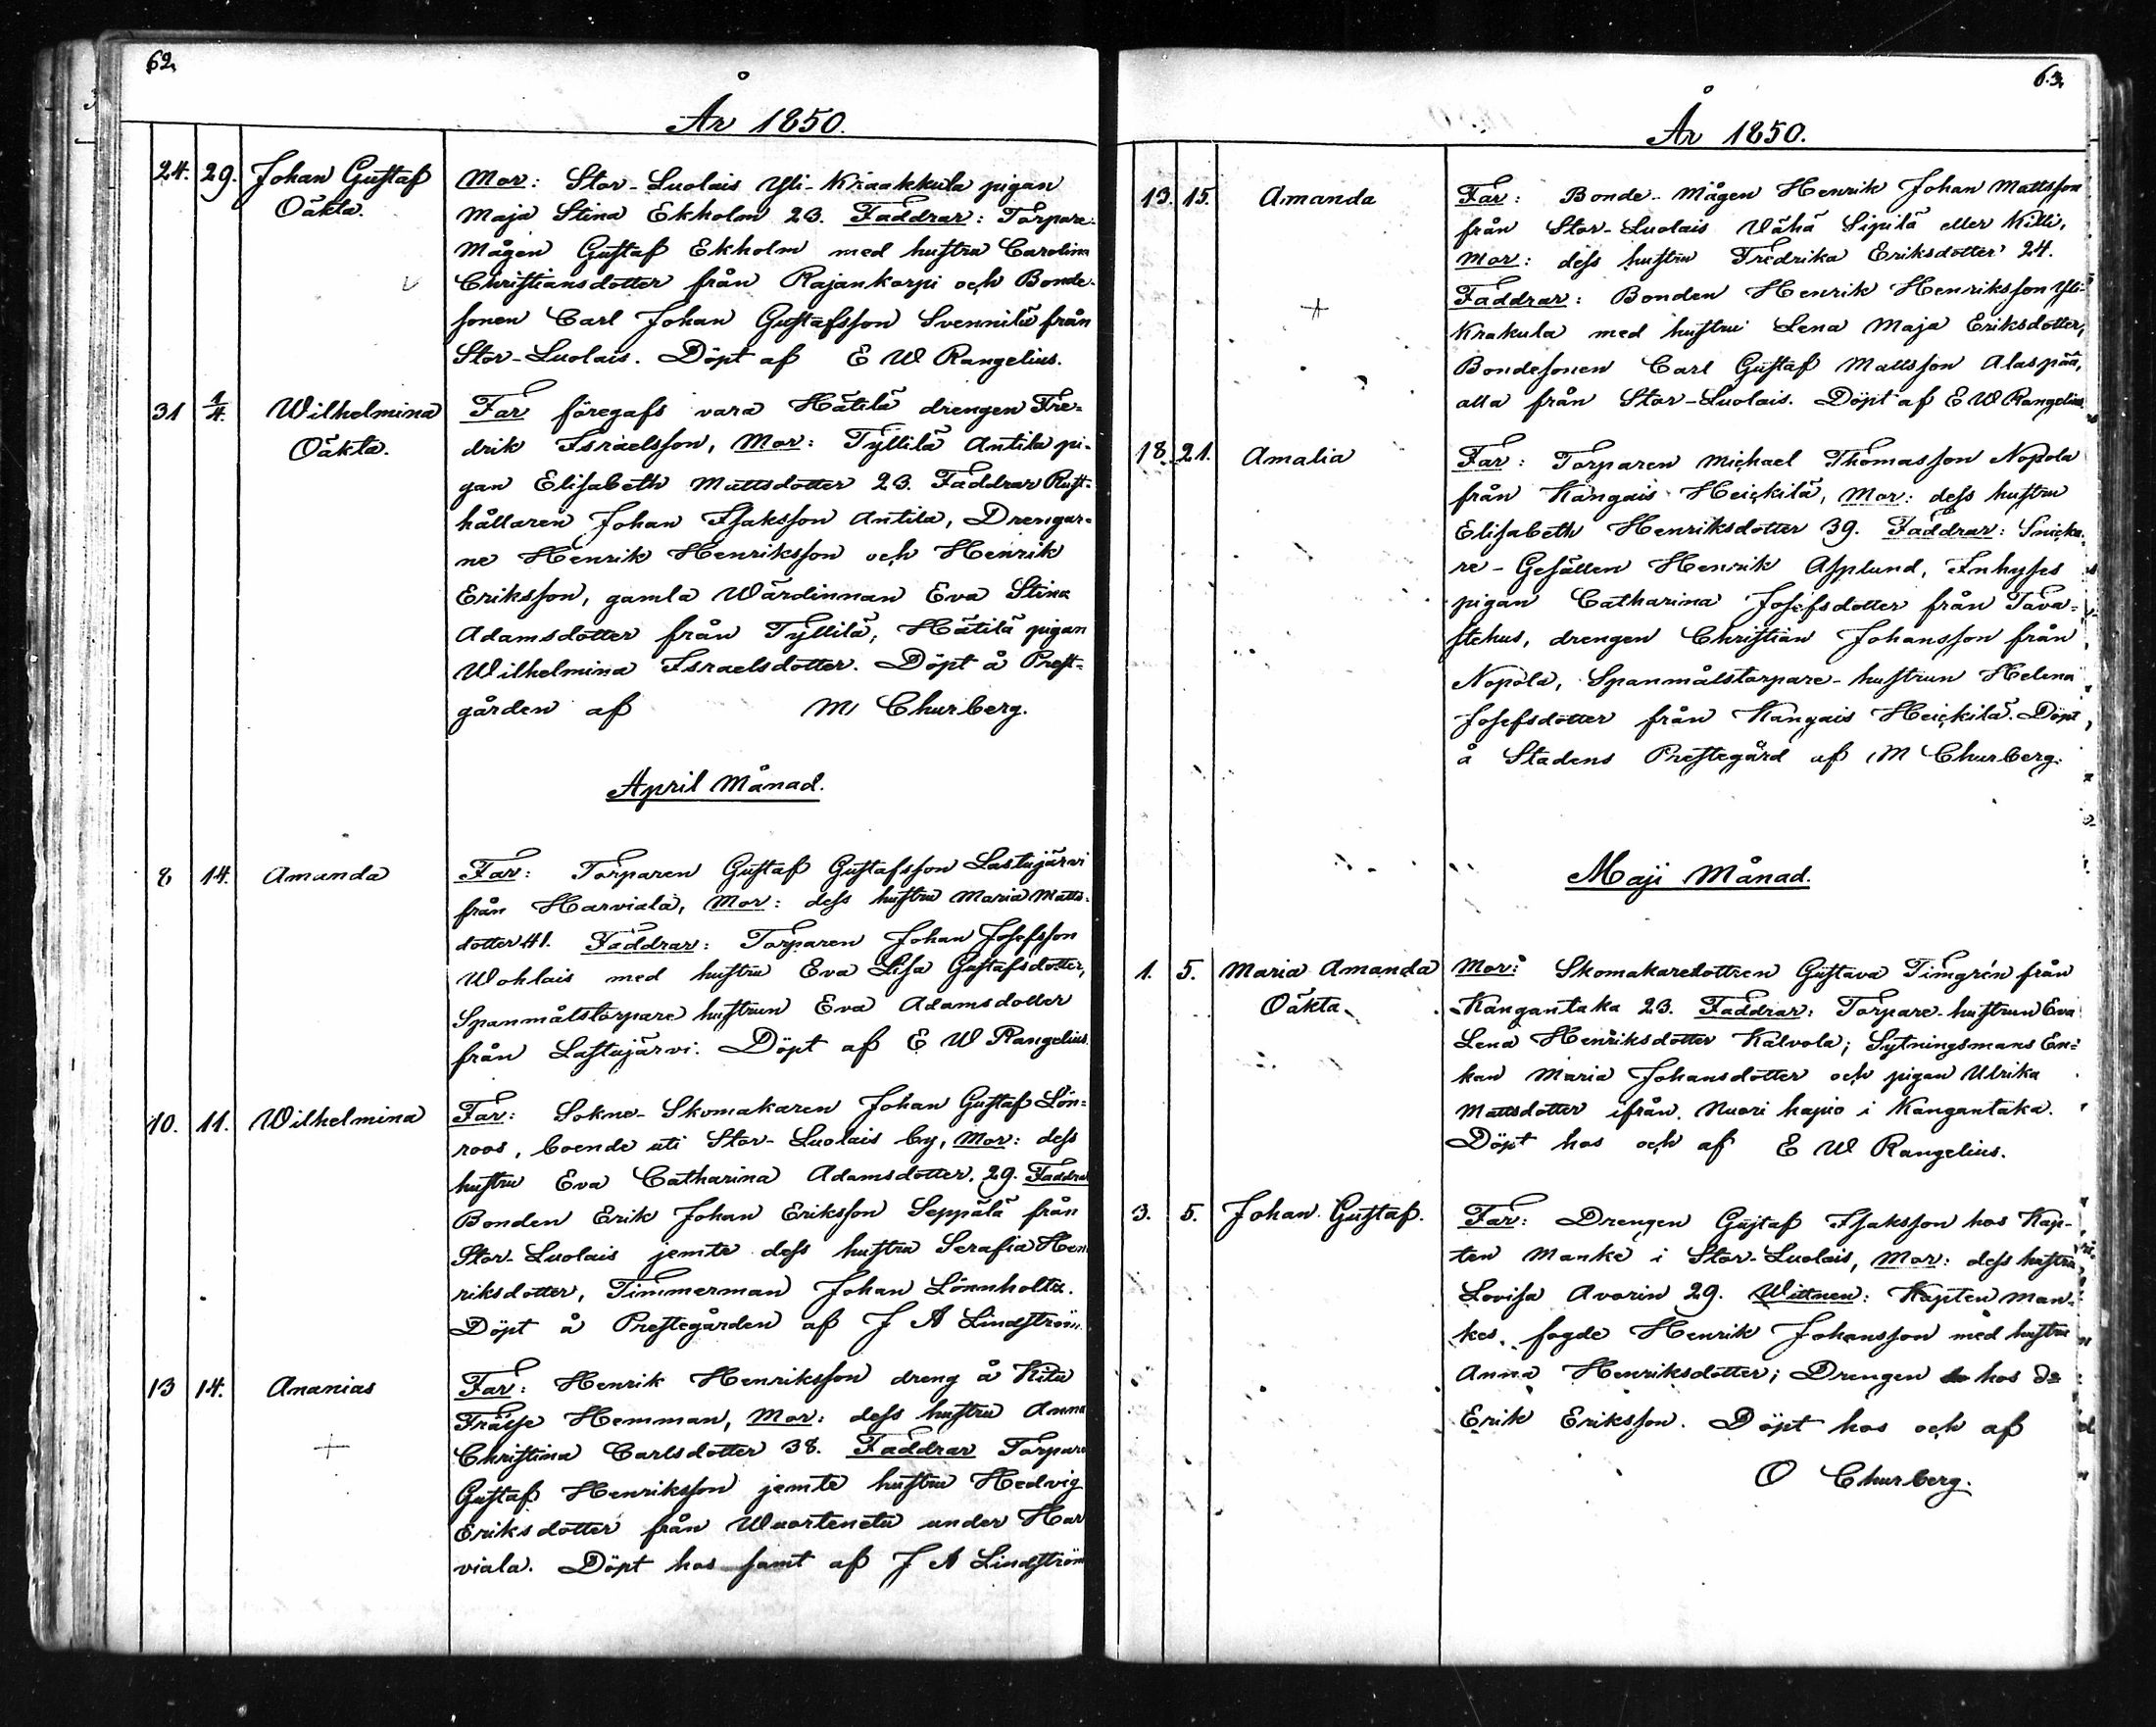 62.
År 1850.
24. 29. Johan Gustaf Mor: Stor-Luolais Yli-Kraakkula pigan
Oäkta. Maja Stina Ekholm 23. Faddrar: Torpare-
Mågen Gustaf Ekholm med hustru Carolina
Christiansdotter från Rajankorpi och Bonde-
sonen Carl Johan Gustafsson Svennilä från
Stor-Luolais. Döpt af E W Rangelius.
31 1/4. Wilhelmina Far föregafs vara Hätilä drengen Fre-
Oäkta. drik Israelsson, Mor: Tyllilä Antila pi-
gan Elisabeth Mattsdotter 23. Faddrar Rust-
hållaren Johan Isaksson Antila, Drengar-
ne Henrik Henriksson och Henrik
Eriksson, gamla Wärdinnan Eva Stina
Adamsdotter från Tyllilä, Hätilä pigan
Wilhelmina Israelsdotter. Döpt å Prest-
gården af M Churberg.
April Månad.
8 14. Amanda Far: Torparen Gustaf Gustafsson Lastujärvi
från Harviala, Mor: dess hustru Maria Matts-
dotter 41. Faddrar: Torparen Johan Josefsson
Wohlais med hustru Eva Lisa Gustafsdotter,
Spanmålstorpare hustrun Eva Adamsdotter
från Lastujärvi. Döpt af E W Rangelius.
10. 11. Wilhelmina Far: Sokne-Skomakaren Johan Gustaf Lön-
roos, boende uti Stor-Luolais by, Mor: dess
hustru Eva Catharina Adamsdotter, 29. Faddrar
Bonden Erik Johan Eriksson Seppälä från
Stor-Luolais jemte dess hustru Serafia Hen
riksdotter, Timmerman Johan Lönnholtz.
Döpt å Prestegården af J A Lindström.
13 14. Ananias Far: Henrik Henriksson dreng å Kitu
+ Frälse Hemman, Mor: dess hustru Anna
Christina Carlsdotter 38. Faddrar Torpare
Gustaf Henriksson jemte hustru Hedvig
Eriksdotter från Wuortenetu under Har
viala. Döpt hos samt af J A Lindström
63.
År 1850.
13. 15. Amanda Far: Bonde-Mågen Henrik Johan Mattsson
från Stor-Luolais Vähä Sipilä eller Killi,
Mor: dess hustru Fredrika Eriksdotter 24.
+ Faddrar: Bonden Henrik Henriksson Yli-
Krakula med hustru Lena Maja Eriksdotter,
Bondesonen Carl Gustaf Mattsson Alaspää,
alla från Stor-Luolais. Döpt af E W Rangelius
18. 21. Amalia Far: Torparen Michael Thomasson Nopola
från Kangais Heickilä, Mor: dess hustru
Elisabeth Henriksdotter 39. Faddrar: Snicka-
re-Gesällen Henrik Asplund, Inhyses
pigan Catharina Josefsdotter från Tava-
stehus, drengen Christian Johansson från
Nopola, Spanmålstorpare-hustrun Helena
Josefsdotter från Kangais Heickilä. Döpt
å Stadens Prestegård af M Churberg.
Maji Månad.
1. 5. Maria Amanda Mor: Skomakaredottren Gustava Timgrén från
Oäkta Kangantaka 23. Faddrar: Torpare-hustrun Eva
Lena Henriksdotter Kalvola; Sytningsmans En-
kan Maria Johansdotter och pigan Ulrika
Mattsdotter ifrån Nuori hapio i Kangantaka.
Döpt hos och af E W Rangelius.
3. 5. Johan Gustaf. Far: Drengen Gustaf Isaksson hos Kap-
ten Manke i Stor-Luolais, Mor: dess hustru
Lovisa Avorin 29. Wittnen: Kapten Man-
kes fogde Henrik Johansson med hustru
Anna Henriksdotter; Drengen hos do
Erik Eriksson. Döpt hos och af
O Churberg.